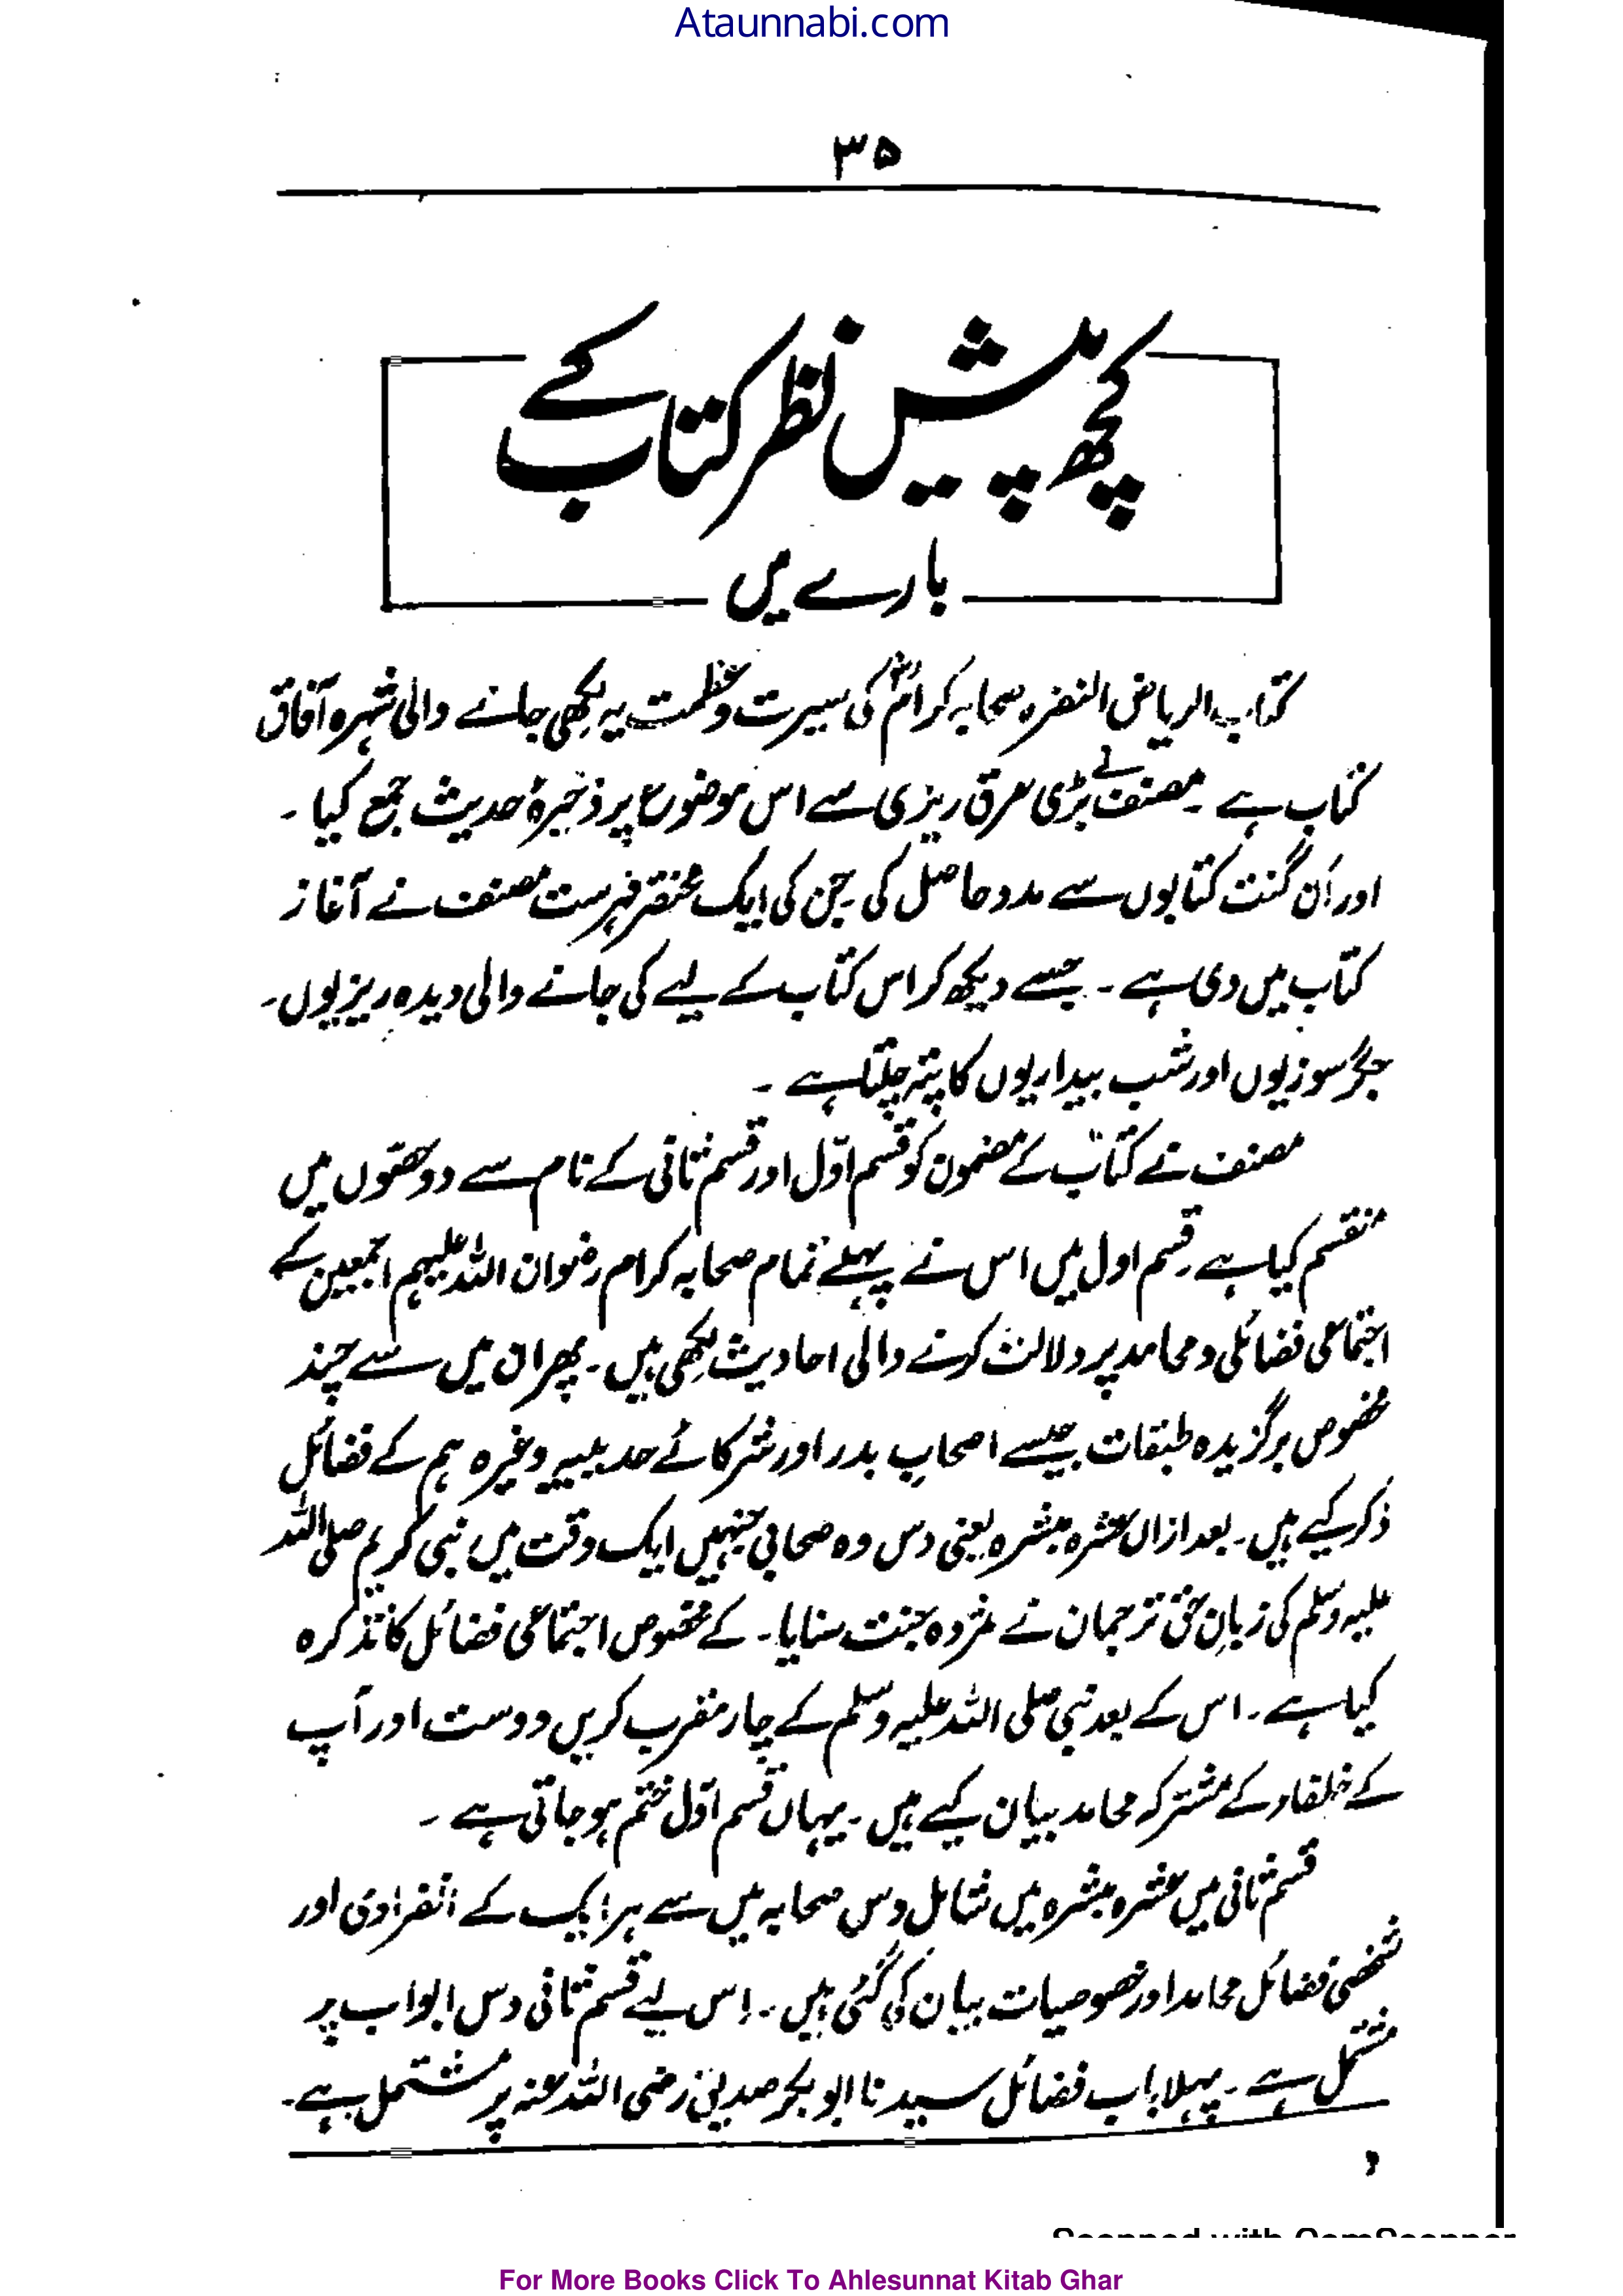 Ataunnabi.com
۳۵
کچھ پیش نظر کتاب کے
بارے میں
کتاب الریاض النضرہ صحابہ کرامؓ کی سیرت و عظمت پہ لکھی جانے والی شہرہ آفاق
کتاب ہے ۔ مصنف نے بڑی عرق ریزی سے اس موضوع پر ذخیرۂ حدیث جمع کیا ۔
اور اَن گنت کتابوں سے مدد حاصل کی ۔ جن کی ایک مختصر فہرست مصنف نے آغاز
کتاب میں دی ہے ۔ جسے دیکھ کر اس کتاب کے لیے کی جانے والی دیدہ ریزیوں۔
جگر سوزیوں اور شب بیداریوں کا پتہ چلتا ہے ۔
مصنف نے کتاب کے مضمون کو قسم اوّل اور قسم ثانی کے نام سے دو حصّوں میں
منقسم کیا ہے ۔ قسم اول میں اس نے پہلے تمام صحابہ کرام رضوان اللہ علیہم اجمعین کے
اجتماعی فضائلی و محامد پر دلالت کرنے والی احادیث لکھی ہیں ۔ پھر ان میں سے چند
مخصوص برگزیدہ طبقات جیسے اصحابِ بدر اور شرکائے حدیبیہ وغیرہ ہم کے فضائل
ذکر کیے ہیں۔ بعد ازاں عشرہ مبشرہ یعنی دس وہ صحابی جنہیں ایک وقت میں نبی کریم صلی اللہ
علیہ وسلم کی زبانِ حق ترجمان نے مژدہ جنت سنایا۔ کے مخصوص اجتماعی فضائل کا تذکرہ
کیا ہے ۔ اس کے بعد نبی صلی اللہ علیہ وسلم کے چار مقرب کریں دوست اور آپ
کے خلفاء کے مشترکہ محامد بیان کیے ہیں ۔ یہاں قسم اوّل ختم ہو جاتی ہے ۔
قسم ثانی میں عشرہ مبشرہ میں شامل دس صحابہ میں سے ہر ایک کے انفرادی اور
شخصی فضائل محامد اور خصوصیات بیان کی گئی ہیں ۔ اِس لیے قسم ثانی دس ابواب پر
مشتمل ہے ۔ پہلا باب فضائل سیدنا ابو بکر صدیق رضی اللہ عنہ پر مشتمل ہے۔
Scanned with CamScanner
For More Books Click To Ahlesunnat Kitab Ghar